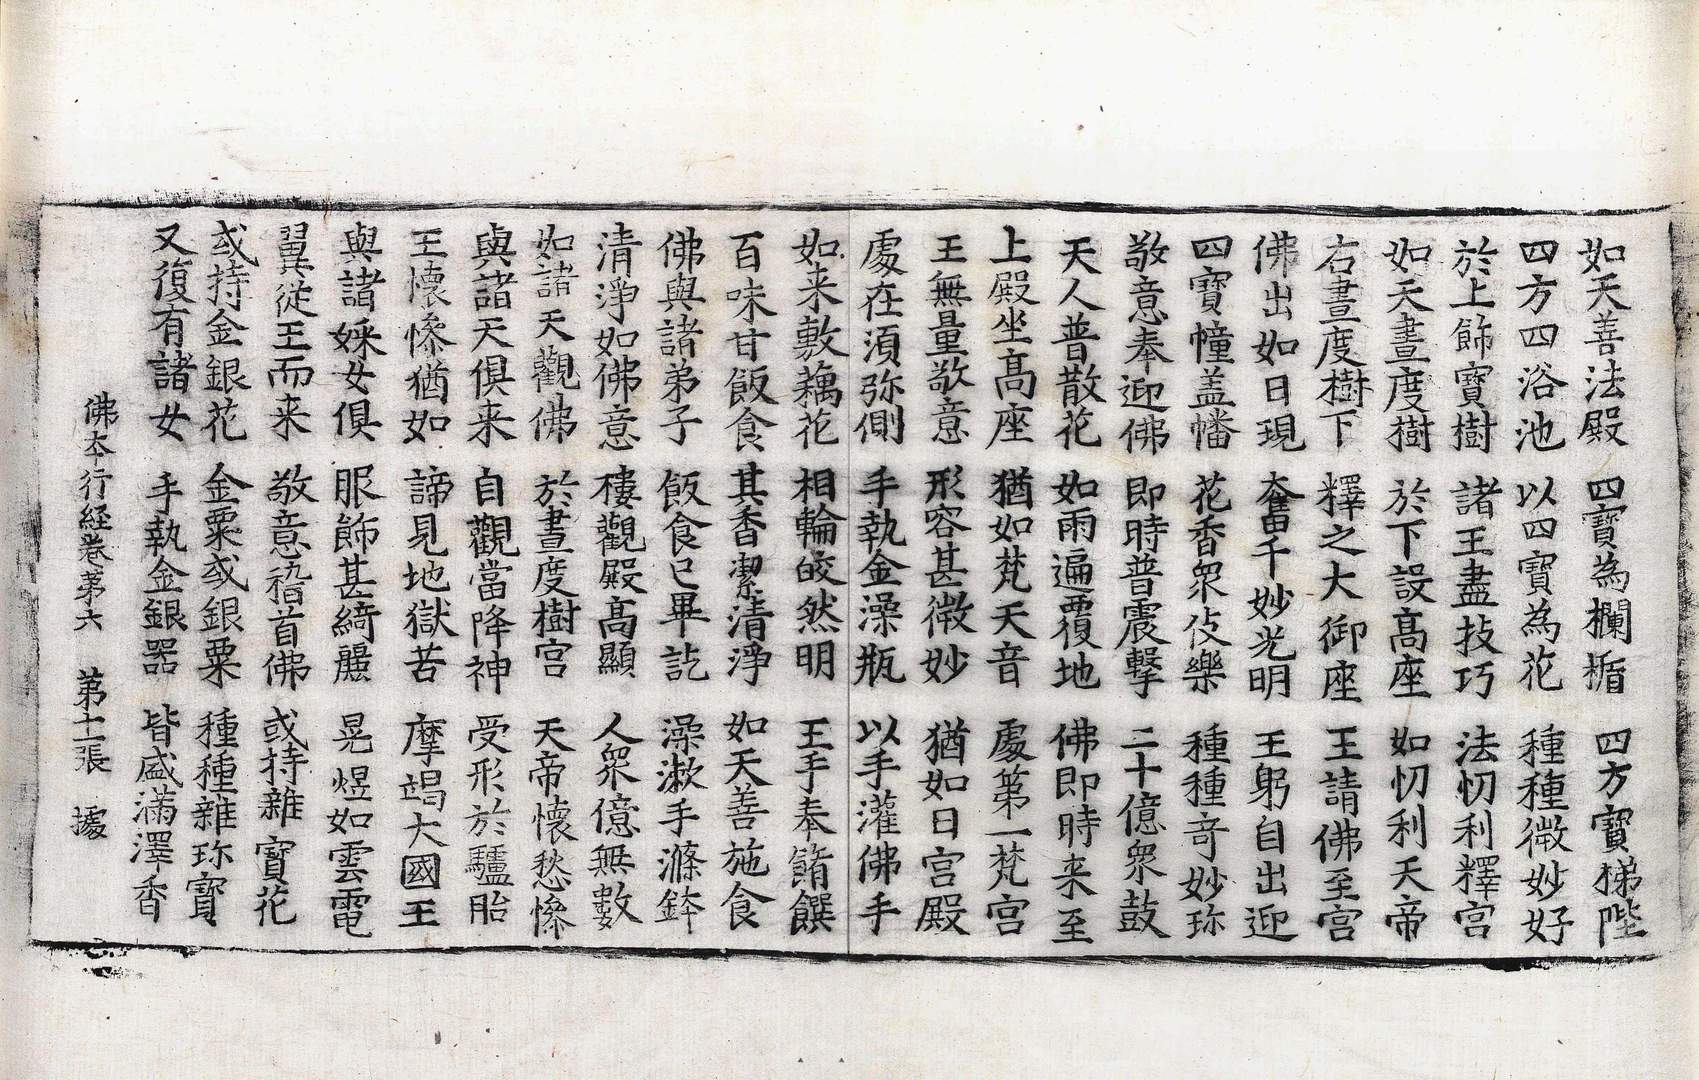 如天善法殿 四寶為欄楯 四方寶梯陛
四方四浴池 以四寶為花 種種微妙好
於上飾寶樹 諸王盡技巧 法忉利釋宮
如天晝度樹 於下設髙座 如忉利天帝
右晝度樹下 釋之大御座 王請佛至宮
佛出如日現 奮千妙光明 王躬自出迎
四寶幢盖幡 花香衆伎樂 種種奇妙珎
敬意奉迎佛 即時普震擊 二十億衆鼓
天人普散花 如雨遍覆地 佛即時来至
上殿坐髙座 猶如梵天音 處第一梵宮
王無量敬意 形容甚微妙 猶如日宮殿
處在湏弥側 手執金澡瓶 以手灌佛手
如来敷藕花 相輪皎然明 王手奉餚饌
百味甘飯食 其香潔清淨 如天善施食
佛與諸弟子 飯食已畢訖 澡漱手滌鉢
清淨如佛意 樓觀殿髙顯 人衆億無數
如諸天觀佛 於晝度樹宮 天帝懷愁慘
與諸天俱来 自觀當降神 受形於驢胎
王懷慘猶如 諦見地獄苦 摩竭大國王
與諸婇女俱 服飾甚綺麗 晃煜如雲電
翼從王而来 敬意稽首佛 或持雜寶花
或持金銀花 金粟或銀粟 種種雜珎寶
又復有諸女 手執金銀器 皆盛滿澤香
佛本行経卷第六 第十一張 據